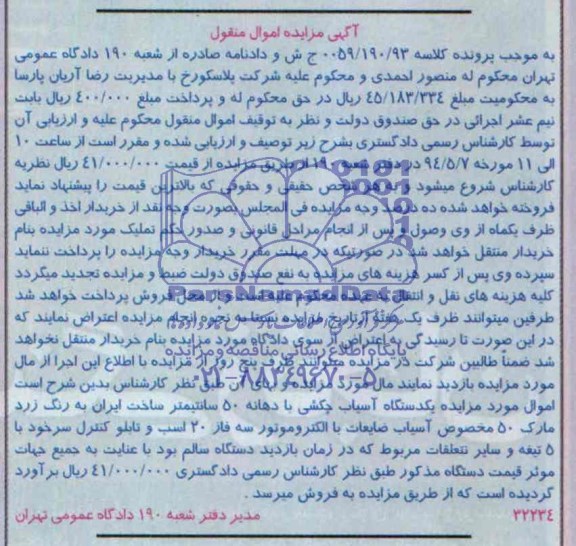 آگهی مزایده اموال منقول
به موجب پرونده کلاسه ۰۰۵۹/۱۹۰/۹۳ ج ش و دادنامه صادره از شعبه ۱۹۰ دادگاه عمومی
تهران محکوم له منصور احمدی و محکوم علیه شرکت پلاسکورخ با مدیریت رضا آریان پارسا
به محکومیت مبلغ ۴۵/۱۸۳/۳۳۴ ریال در حق محکوم له و پرداخت مبلغ ۴۰۰/۰۰۰ ریال بابت
نیم عشر اجرائی در حق صندوق دولت و نظر به توقیف اموال منقول محکوم علیه و ارزیابی آن
توسط کارشناس رسمی دادگستری بشرح زیر توصیف و ارزیابی شده و مقرر است از ساعت ۱۰
الی ۱۱ مورخه ۹۴/۵/۷ در دفتر شعبه ۱۹۰ از طریق مزایده از قیمت ۴۱/۰۰۰/۰۰۰ ریال نظریه
کارشناس شروع میشود و به هر شخص حقیقی و حقوقی که بالاترین قیمت را پیشنهاد نماید
فروخته خواهد شده ده درصد وجه مزایده فی المجلس بصورت وجه نقد از خریدار اخذ و الباقی
ظرف یکماه از وی وصول و پس از انجام مراحل قانونی و صدور حکم تملیک مورد مزایده بنام
خریدار منتقل خواهد شد در صورتیکه در مهلت مقرر خریدار وجه مزایده را پرداخت ننماید
سپرده وی پس از کسر هزینه های مزایده به نفع صندوق دولت ضبط و مزایده تجدید میگردد
کلیه هزینه های نقل و انتقال به عهده محکوم علیه است و از محل فروش پرداخت خواهد شد
طرفین میتوانند ظرف یک هفته از تاریخ مزایده نسبت به نحوه انجام مزایده اعتراض نمایند که
در این صورت تا رسیدگی به اعتراض از سوی دادگاه مورد مزایده بنام خریدار منتقل نخواهد
شد ضمناً طالبین شرکت در مزایده میتوانند ظرف پنج روز از مزایده با اطلاع این اجرا از مال
مورد مزایده بازدید نمایند مال مورد مزایده و بهای آن طبق نظر کارشناس بدین شرح است
اموال مورد مزایده یکدستگاه آسیاب چکشی با دهانه ۵۰ سانتیمتر ساخت ایران به رنگ زرد
مارک ۵۰ مخصوص آسیاب ضایعات با الکتروموتور سه فاز ۲۰ اسب و تابلو کنترل سرخود با
۵ تیغه و سایر تتعلقات مربوط که در زمان بازدید دستگاه سالم بود با عنایت به جمیع جهات
موثر قیمت دستگاه مذکور طبق نظر کارشناس رسمی دادگستری ۴۱/۰۰۰/۰۰۰ ریال برآورد
گردیده است که از طریق مزایده به فروش میرسد .
۳۲۲۳۴ مدیر دفتر شعبه ۱۹۰ دادگاه عمومی تهران
ParsNamadData
پایگاه اطلاع رسانی مناقصه و مزایده
۰۲۱-۸۸۳۴۹۶۷۰-۵